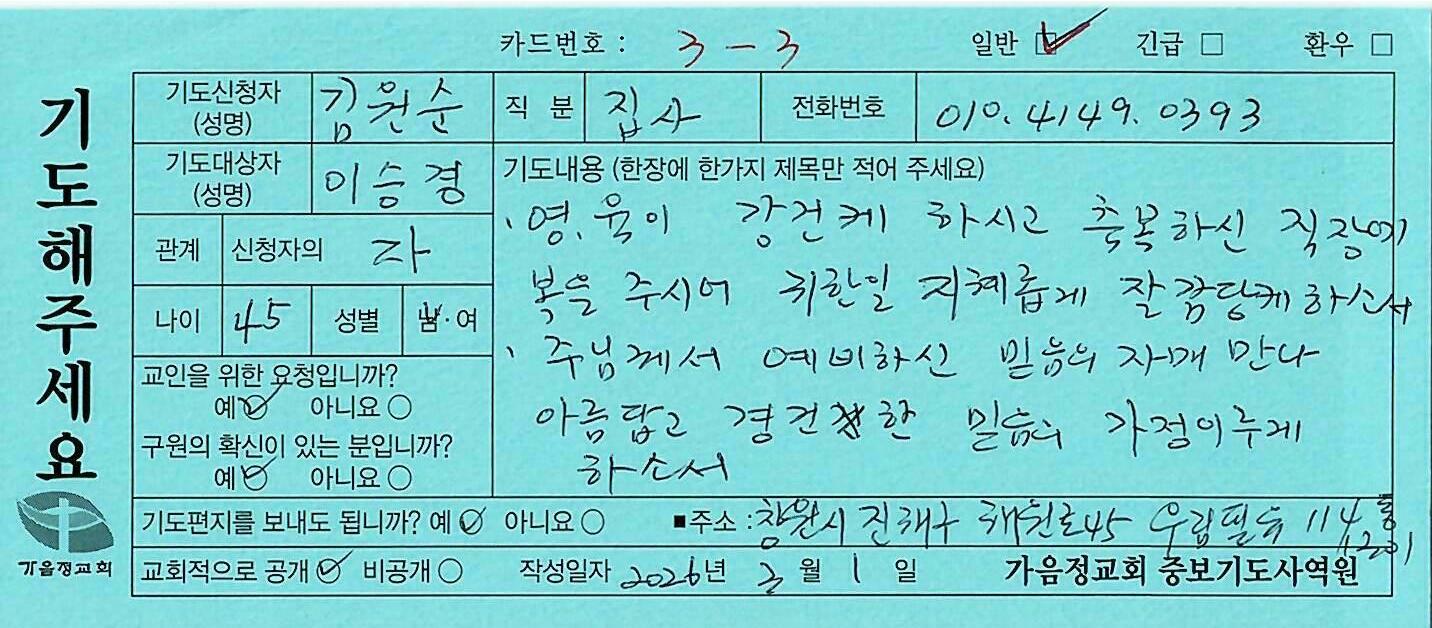 카드번호 : 3-3 일반 ☑ 긴급 □ 환우 □
기도해주세요
기도신청자 (성명) 김원순 직 분 집사 전화번호 010.4149.0393
기도대상자 (성명) 이승경
관계 신청자의 자
나이 45 성별 남·여
교인을 위한 요청입니까?
예 ☑ 아니요 ○
구원의 확신이 있는 분입니까?
예 ☑ 아니요 ○
기도내용 (한장에 한가지 제목만 적어 주세요)
· 영.육이 강건케 하시고 축복하신 직장에
복을 주시어 귀한일 지혜롭게 잘 감당케하소서
· 주님께서 예비하신 믿음의 자매 만나
아름답고 경건한 믿음의 가정이루게
하소서
기도편지를 보내도 됩니까? 예 ☑ 아니요 ○ ■주소 : 창원시 진해구 해원로45 우림필유 114동
1201
가음정교회
교회적으로 공개 ☑ 비공개 ○ 작성일자 2026년 3월 1일 가음정교회 중보기도사역원